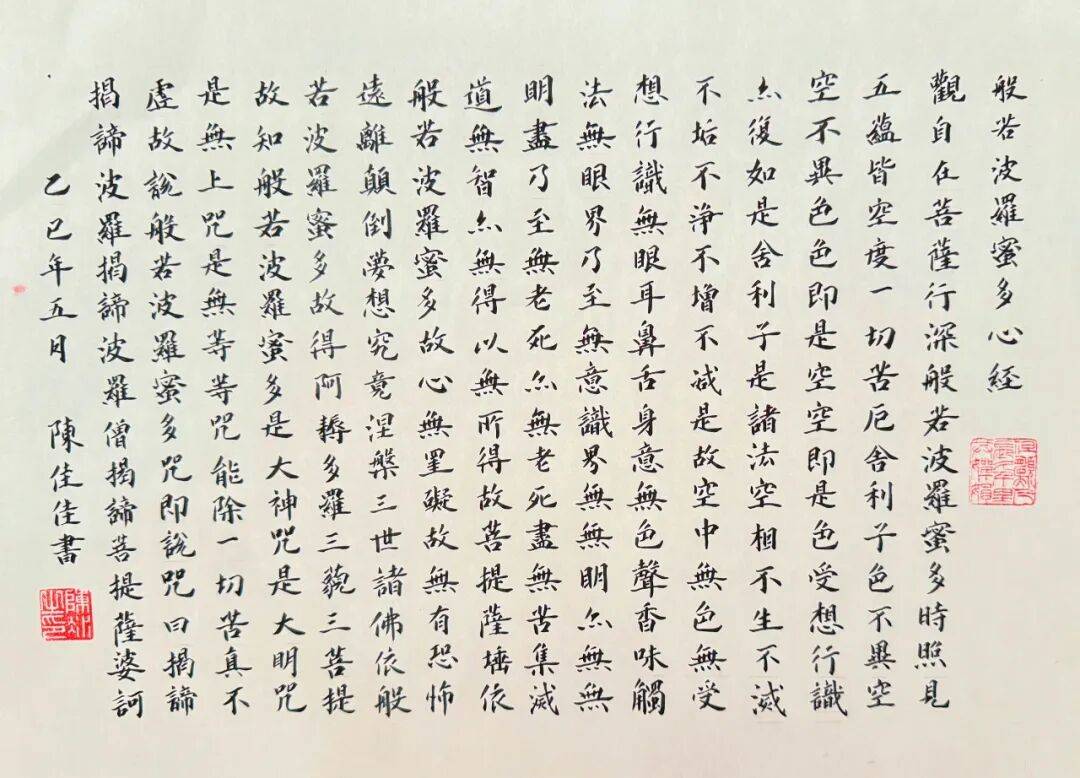 般若波羅蜜多心経
觀自在菩薩行深般若波羅蜜多時照見
五蘊皆空度一切苦厄舍利子色不異空
空不異色色即是空空即是色受想行識
亦復如是舍利子是諸法空相不生不滅
不垢不淨不增不減是故空中無色無受
想行識無眼耳鼻舌身意無色聲香味觸
法無眼界乃至無意識界無無明亦無無
明盡乃至無老死亦無老死盡無苦集滅
道無智亦無得以無所得故菩提薩埵依
般若波羅蜜多故心無罣礙故無有恐怖
遠離顛倒夢想究竟涅槃三世諸佛依般
若波羅蜜多故得阿耨多羅三藐三菩提
故知般若波羅蜜多是大神咒是大明咒
是無上咒是無等等咒能除一切苦真不
虛故說般若波羅蜜多咒即說咒曰揭諦
揭諦波羅揭諦波羅僧揭諦菩提薩婆訶
乙巳年五月 陳佳佳書